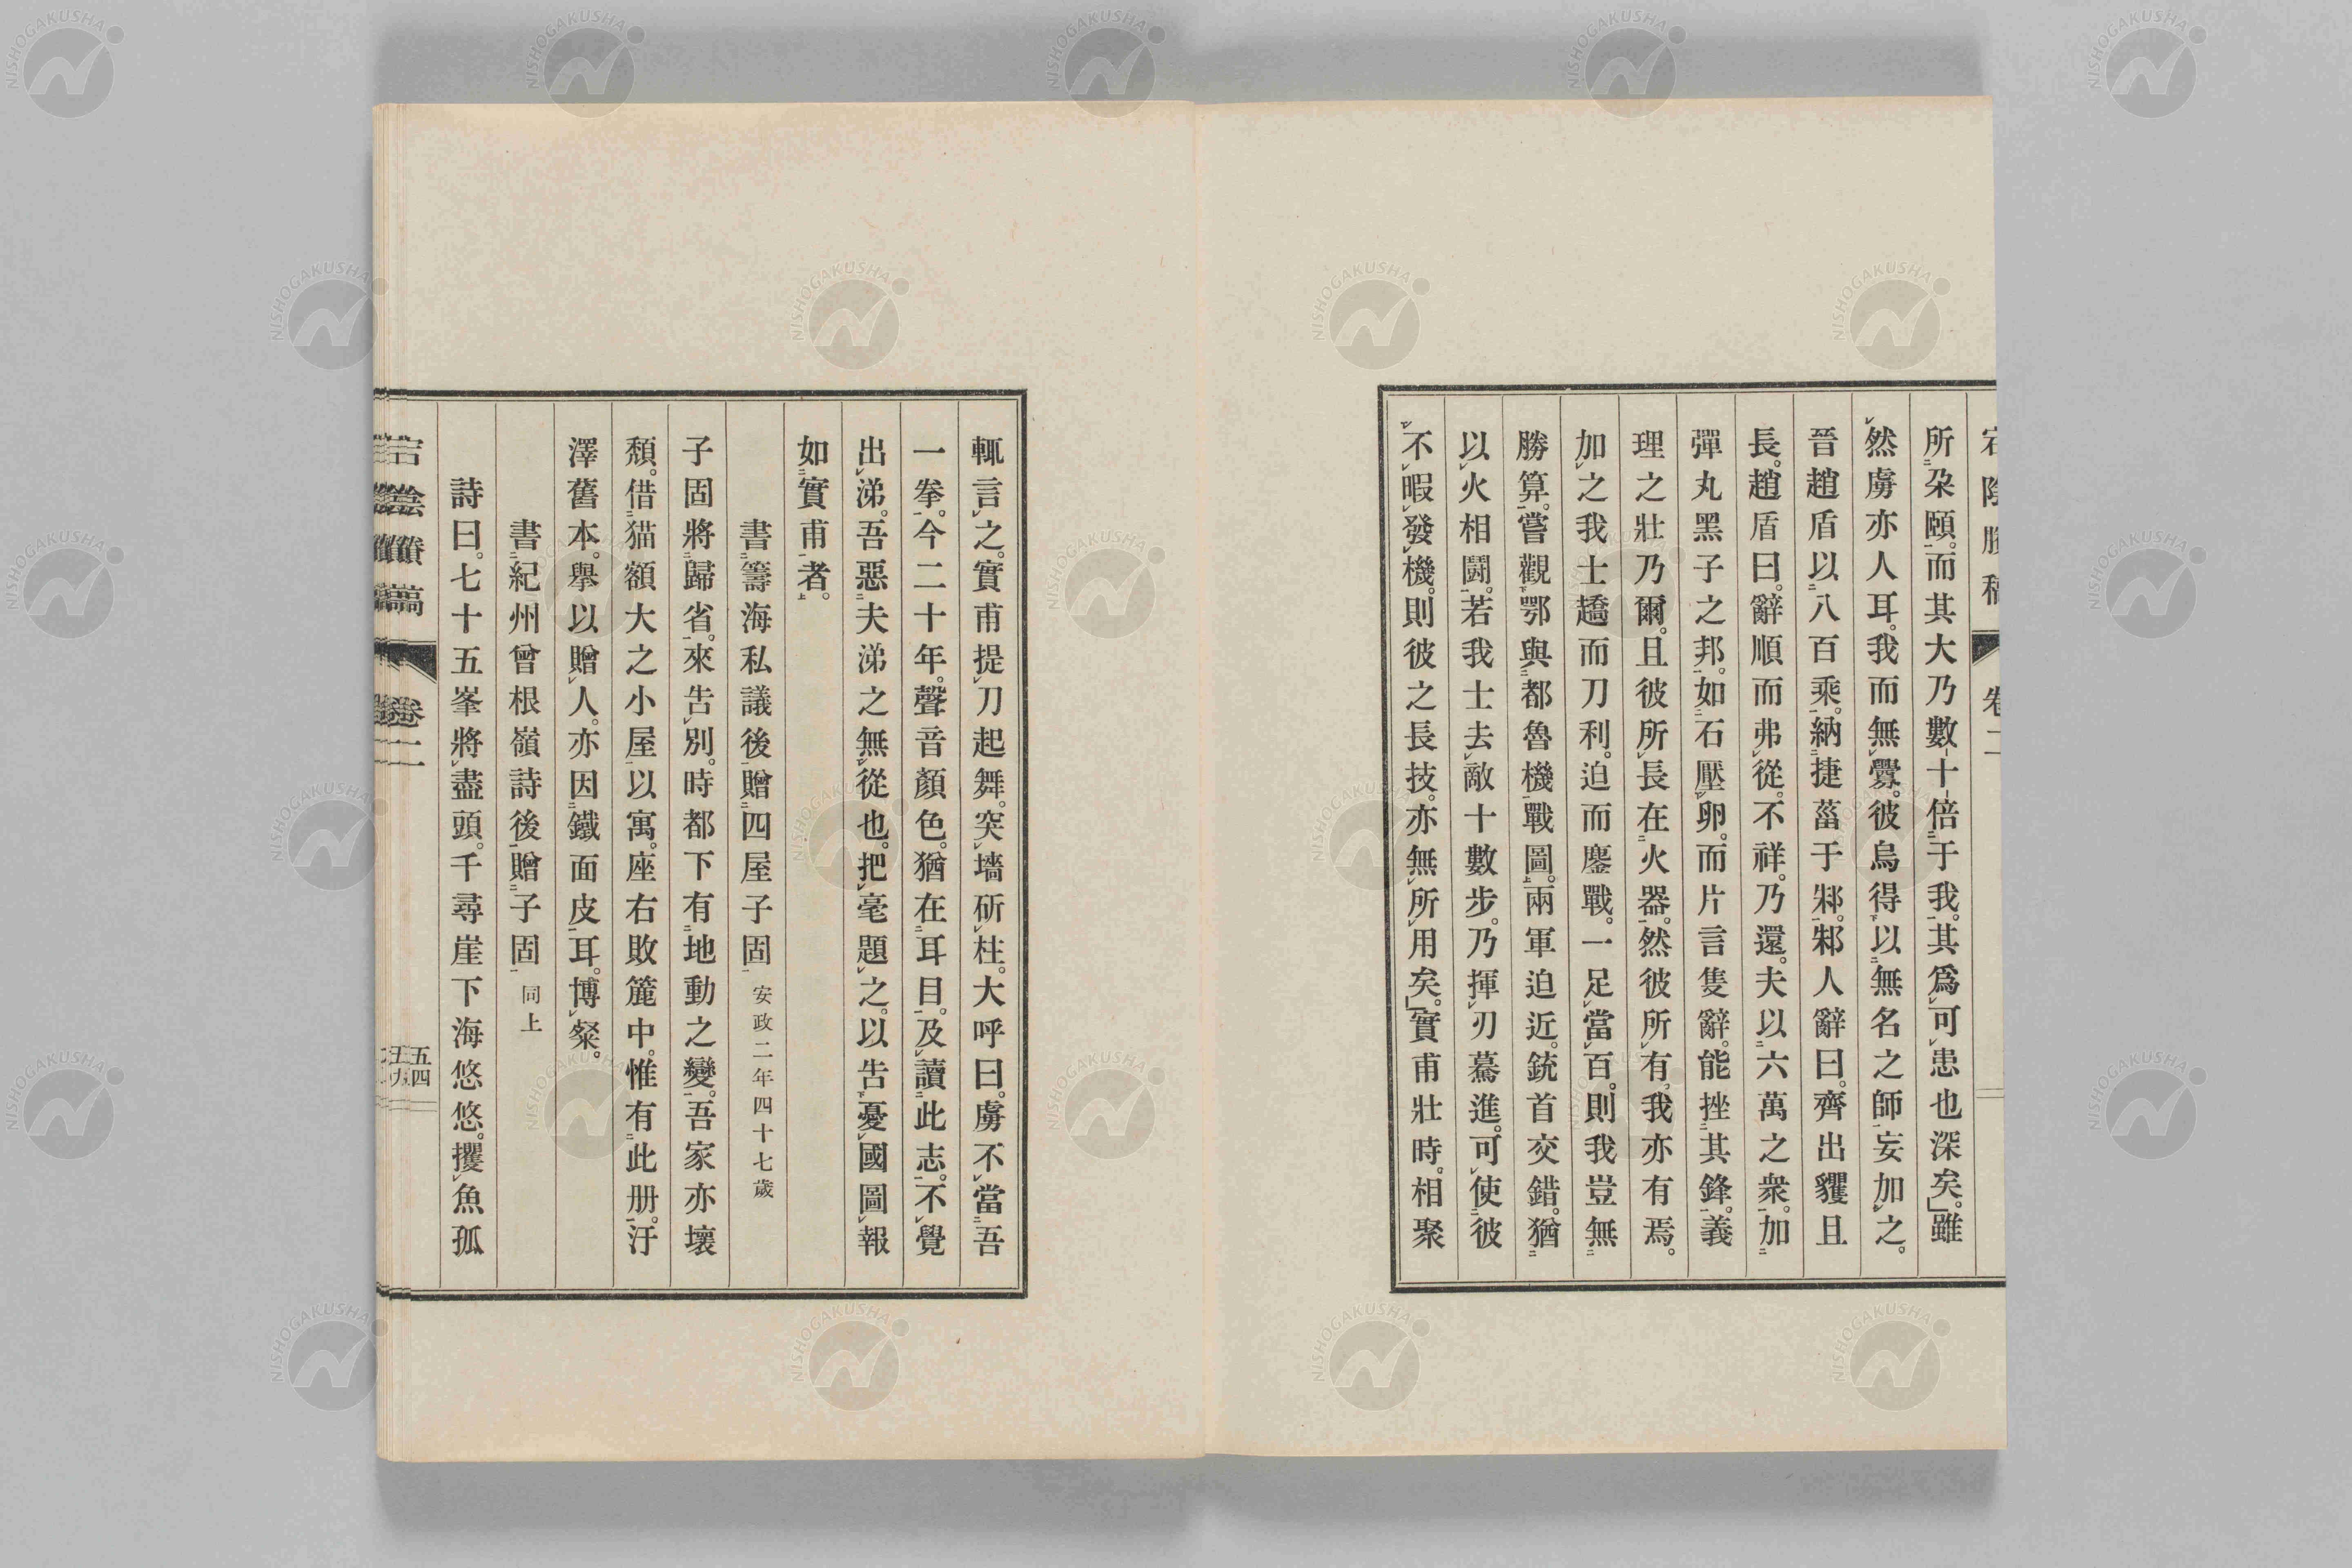 宕陰賸稿 卷二
所朶頤。而其大乃數十倍于我。其爲可患也深矣。」雖
然虜亦人耳。我而無釁。彼烏得以無名之師妄加之。
晉趙盾以八百乘。納捷菑于邾。邾人辭曰。齊出貜且
長。趙盾曰。辭順而弗從。不祥。乃還。夫以六萬之衆。加
彈丸黑子之邦。如石壓卵。而片言隻辭。能挫其鋒。義
理之壯乃爾。且彼所長在火器。然彼所有。我亦有焉。
加之我士趫而刀利。迫而鏖戰。一足當百。則我豈無
勝算。嘗觀鄂與都魯機戰圖。兩軍迫近。銃首交錯。猶
以火相鬪。若我士去敵十數步。乃揮刃驀進。可使彼
不暇發機。則彼之長技。亦無所用矣。」實甫壯時。相聚
輒言之。實甫提刀起舞。突墻斫柱。大呼曰。虜不當吾
一拳。今二十年。聲音顏色。猶在耳目。及讀此志。不覺
出涕。吾惡夫涕之無從也。把毫題之。以告憂國圖報
如實甫者。
書籌海私議後贈四屋子固 安政二年四十七歲
子固將歸省。來告別。時都下有地動之變。吾家亦壞
頽。借猫額大之小屋以寓。座右敗簏中。惟有此册。汙
澤舊本。擧以贈人。亦因鐵面皮耳。博粲。
書紀州曾根嶺詩後贈子固 同上
詩曰。七十五峯將盡頭。千尋崖下海悠悠。攫魚孤
宕陰賸稿 卷二 五四